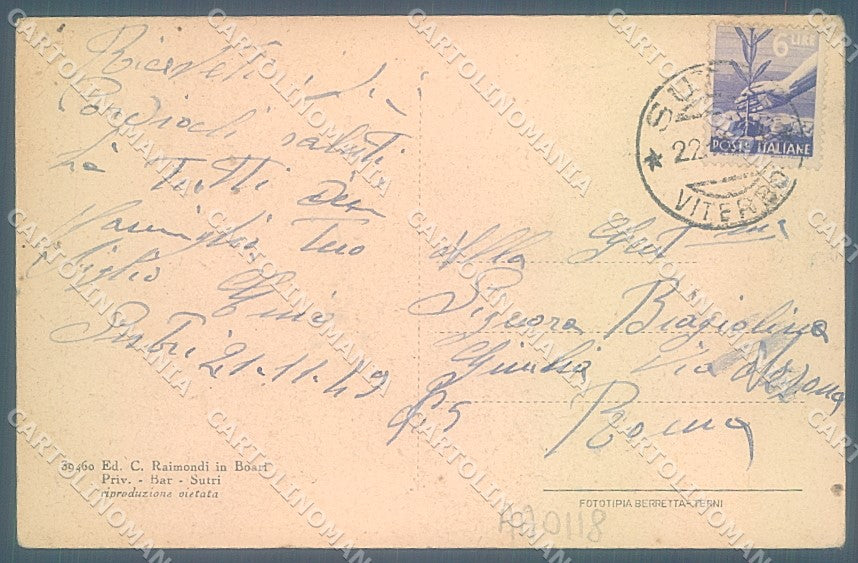 Riceveti i più
Cordiali saluti
ha Tutti
Tuo
figlio Gino
Sutri 21-11-49
6 LIRE
POSTE ITALIANE
SUTRI
22.
VITERBO
Alla Gent.ma
Signora
Giulia Via
65
Roma
30460 Ed. C. Raimondi in Boari
Priv. - Bar - Sutri
riproduzione vietata
FOTOTIPIA BERRETTA-TERNI
CARTOLINOMANIA